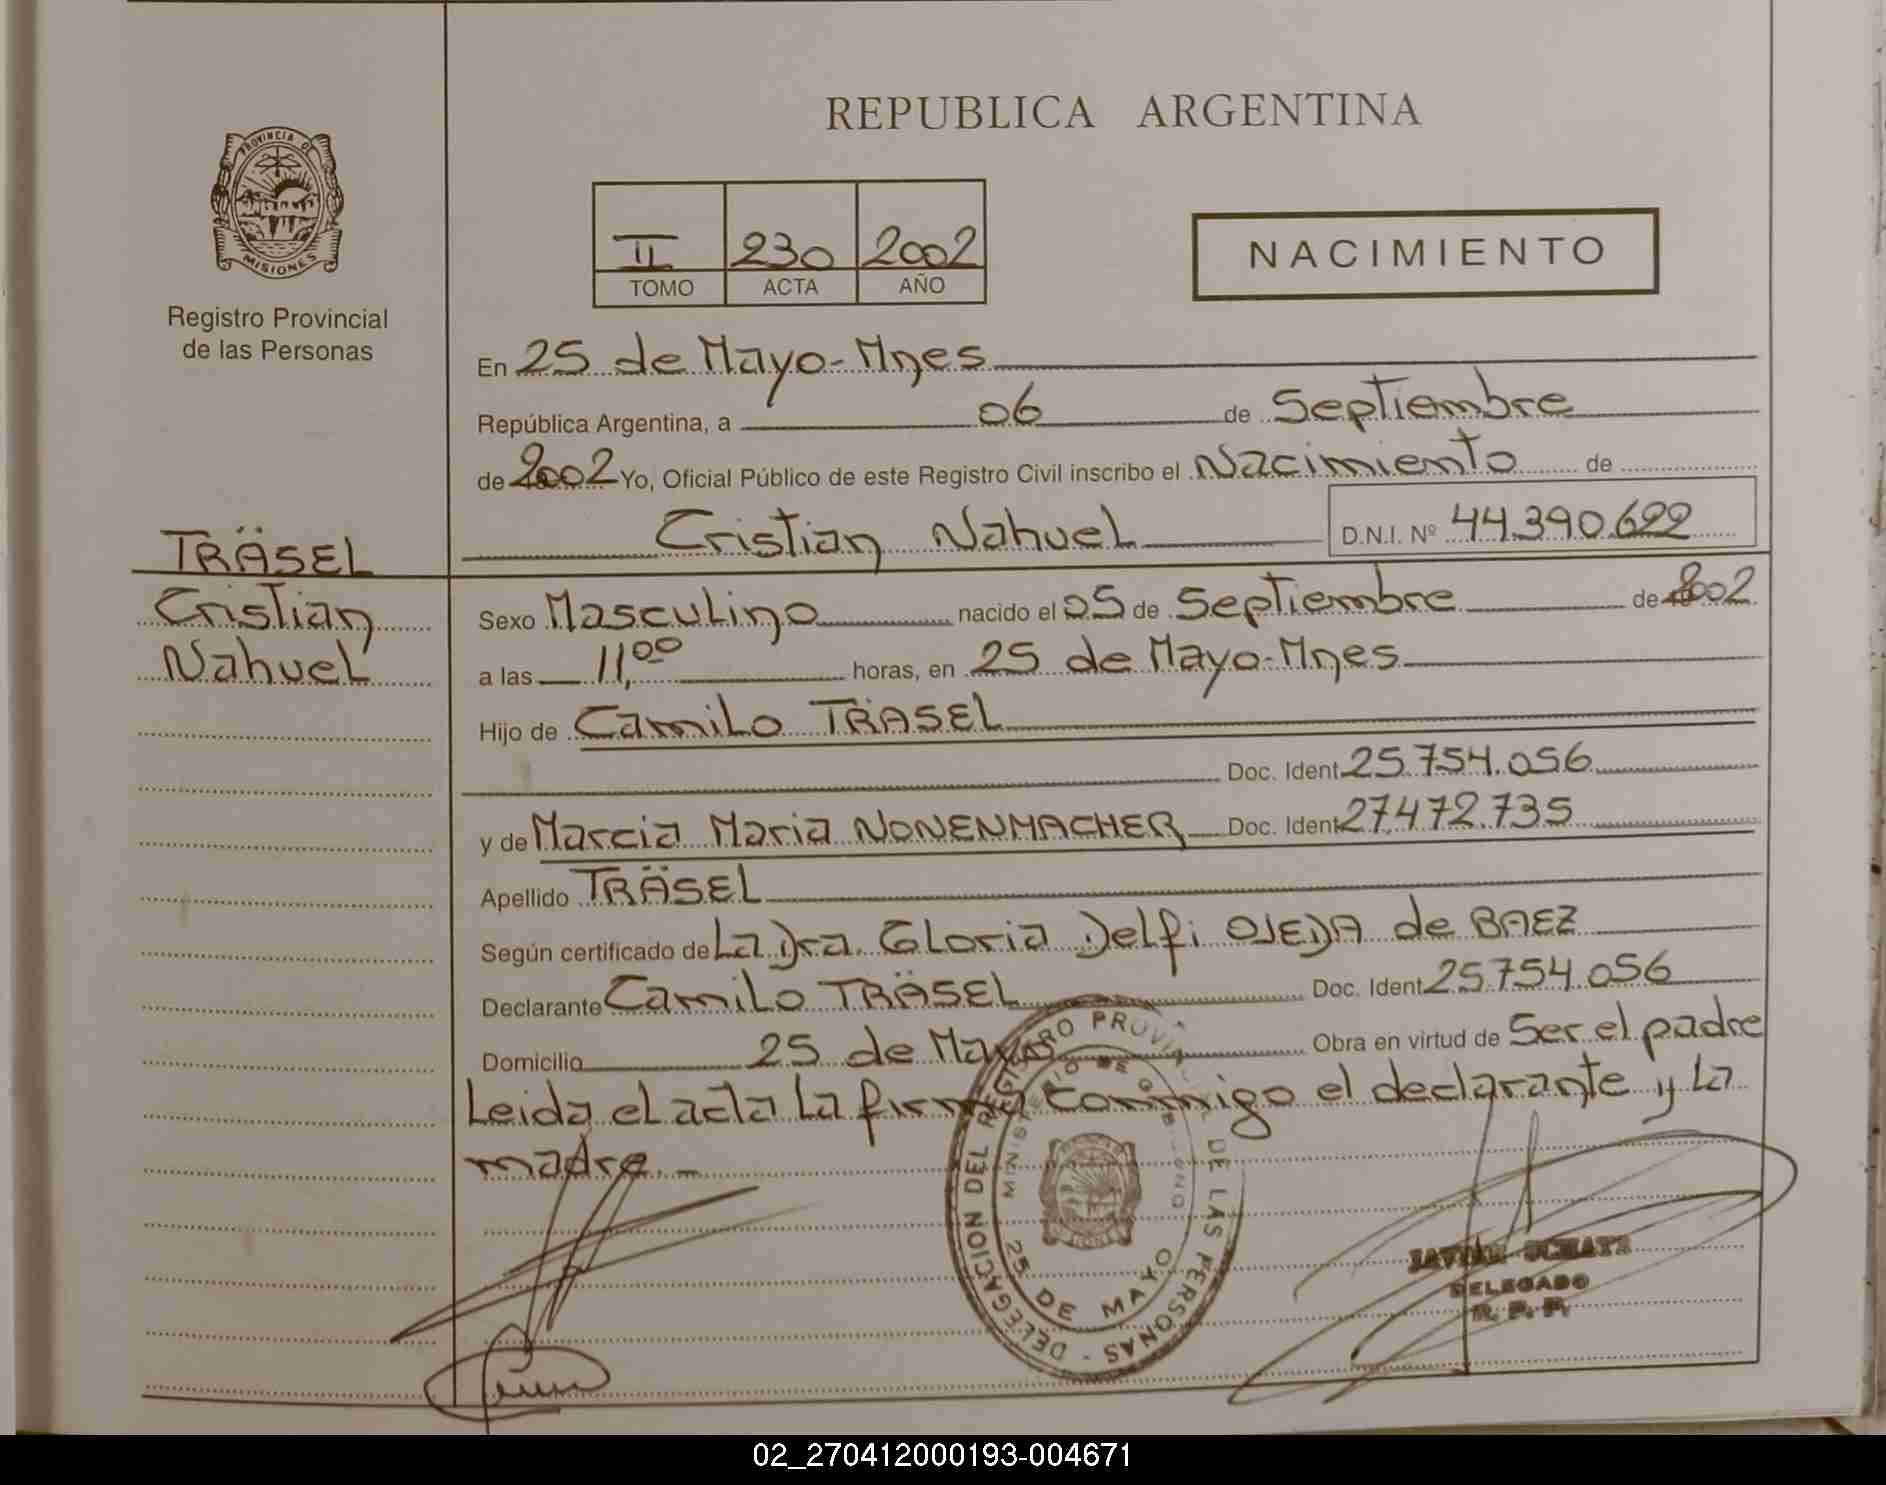 REPUBLICA ARGENTINA
PROVINCIA D
MISIONES
Registro Provincial
de las Personas
II 230 2002
TOMO ACTA AÑO
NACIMIENTO
En 25 de Mayo-Mnes
República Argentina, a 06 de Septiembre
de 2002 Yo, Oficial Público de este Registro Civil inscribo el Nacimiento de
Cristian Nahuel D.N.I. Nº 44.390.622
TRÄSEL
Cristian
Nahuel
Sexo Masculino nacido el 05 de Septiembre de 2002
a las 11,00 horas, en 25 de Mayo-Mnes
Hijo de Camilo TRÄSEL
Doc. Ident 25.754.056
y de Marcia Maria NONENMACHER Doc. Ident 27.472.735
Apellido TRÄSEL
Según certificado de La Dra. Gloria Delfi OJEDA de BAEZ
Declarante Camilo TRÄSEL Doc. Ident 25.754.056
Domicilio 25 de Mayo Obra en virtud de Ser el padre
Leida el acta la firma conmigo el declarante y la
madre.-
DELEGACION DEL REGISTRO PROVIN DE LAS PERSONAS -
MINISTERIO DE GOBIERNO
25 DE MAYO
DELEGADO
R. P. P.
02_270412000193-004671